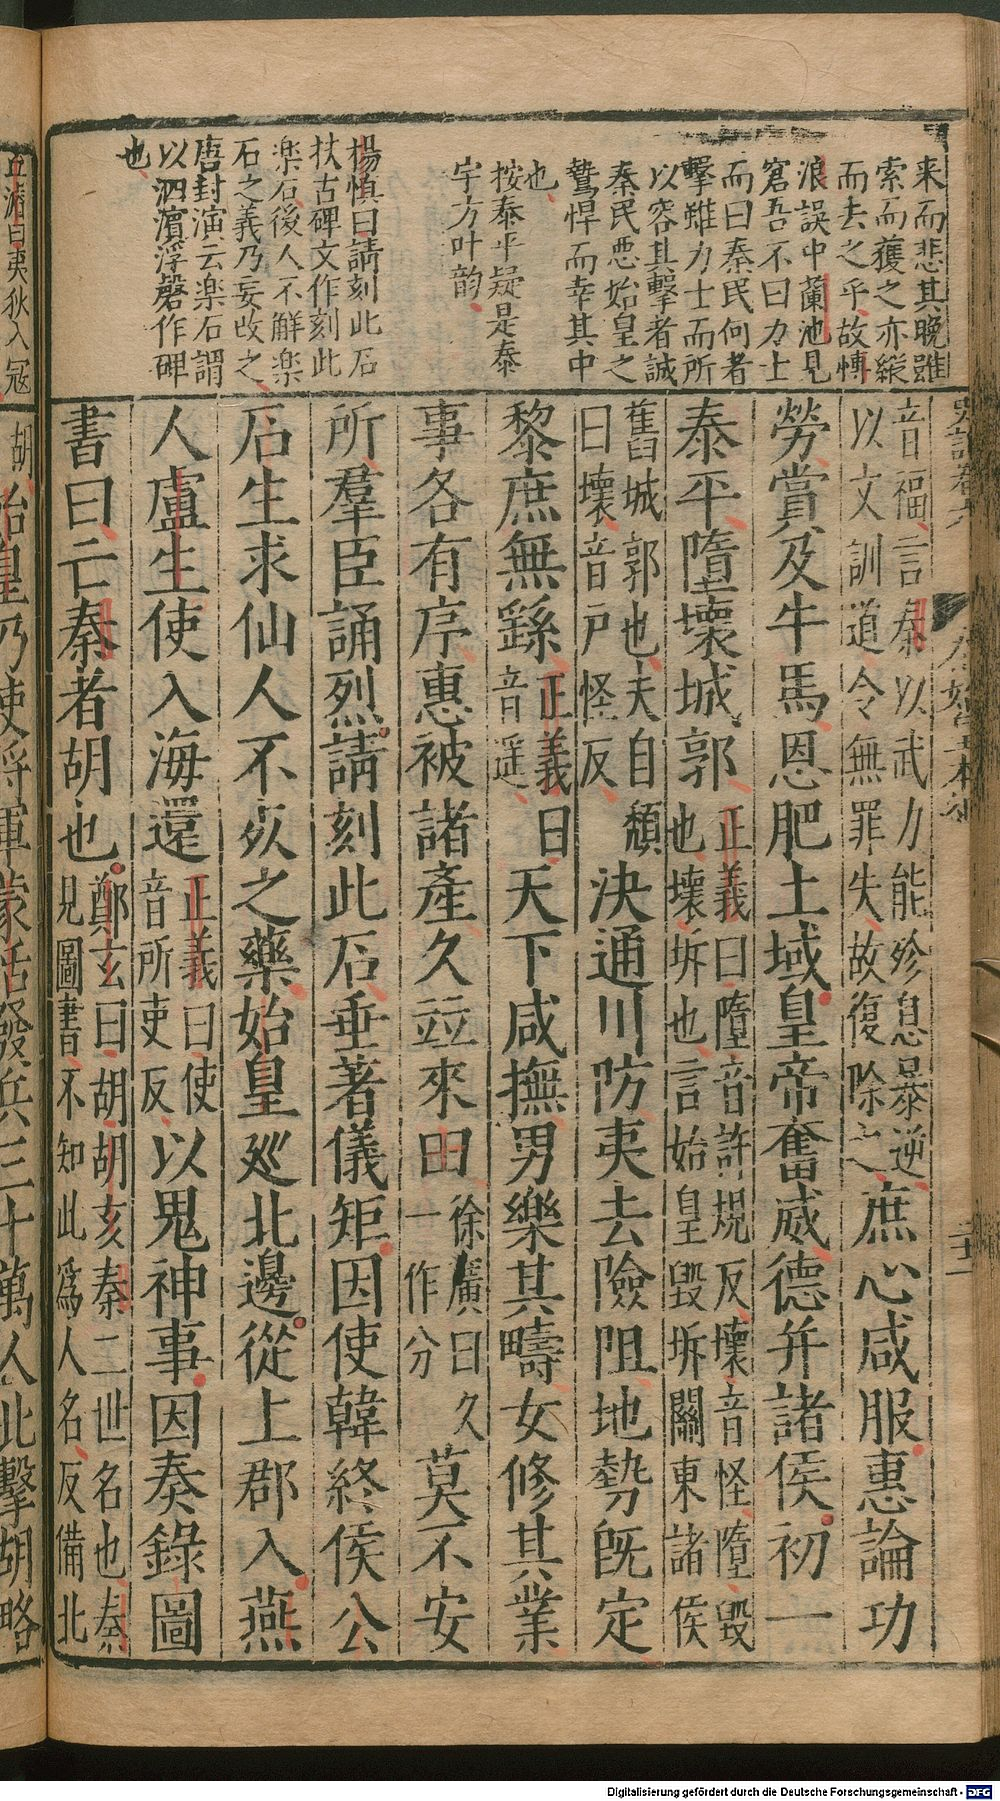 来而悲其晩雖
索而獲之亦縱
而去之乎故慱
浪誤中蘭池見
窘吾不曰力士
而曰秦民何者
擊雖力士而所
以容其擊者誠
秦民惡始皇之
鷙悍而幸其中
也
按泰平疑是泰
宇方叶韵
楊慎曰請刻此石
扶古碑文作刻此
楽石後人不觧楽
石之義乃妄改之
唐封演云楽石謂
以泗濵浮磬作碑
也
史記卷六 秦始皇本紀
音福言秦以武力能殄息暴逆
以文訓道令無罪失故復除之
庶心咸服惠論功
勞賞及牛馬恩肥土域皇帝奮威德并諸侯初一
泰平墮壞城郭
正義曰墮音許規反壞音怪墮毁
也壞坼也言始皇毁坼關東諸侯
舊城郭也夫自頽
曰壞音戸怪反
決通川防夷去險阻地勢旣定
黎庶無繇
正義曰
音遥
天下咸撫男樂其疇女修其業
事各有序惠被諸產久竝來田
徐廣曰久
一作分
莫不安
所羣臣誦烈請刻此石垂著儀矩因使韓終侯公
石生求仙人不死之藥始皇巡北邊從上郡入燕
人盧生使入海還
正義曰使
音所吏反
以鬼神事因奏錄圖
書曰亡秦者胡也
鄭玄曰胡胡亥秦二世名也秦
見圖書不知此爲人名反備北
丘濬曰夷狄入冦
胡
始皇乃使將軍蒙恬發兵三十萬人北擊胡略
Digitalisierung gefördert durch die Deutsche Forschungsgemeinschaft - DFG